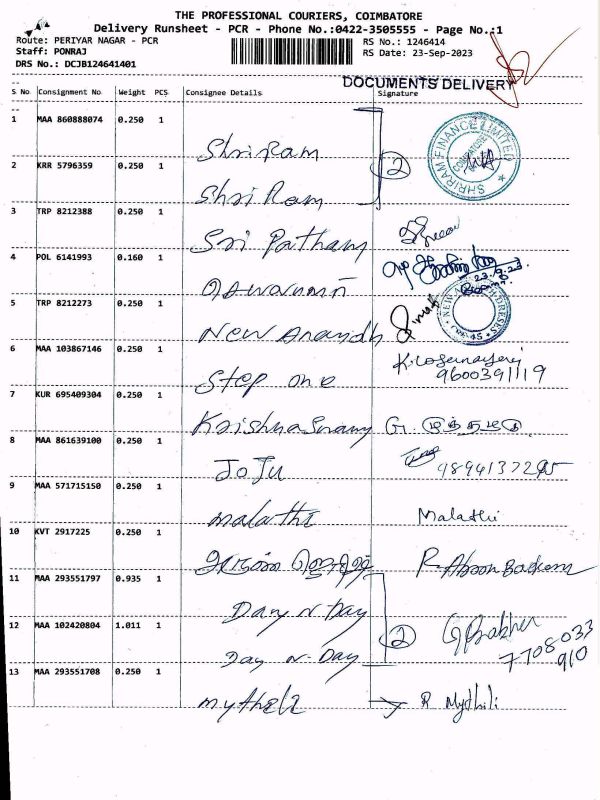 THE PROFESSIONAL COURIERS, COIMBATORE
Delivery Runsheet - PCR - Phone No.:0422-3505555 - Page No.:1
Route: PERIYAR NAGAR - PCR RS No.: 1246414
Staff: PONRAJ RS Date: 23-Sep-2023
DRS No.: DCJB124641401
DOCUMENTS DELIVERY
S No Consignment No Weight PCS Consignee Details Signature
1 MAA 860888074 0.250 1 Shri Ram
SHRIRAM FINANCE LIMITED COIMBATORE
2 KRR 5796359 0.250 1 Shri Ram 2
3 TRP 8212388 0.250 1 Sri Patham
4 POL 6141993 0.160 1 23.9.23
5 TRP 8212273 0.250 1 New Anandh
6 MAA 103867146 0.250 1 Step one 9600391119
7 KUR 695409304 0.250 1 Krishna Swamy G.
8 MAA 861639100 0.250 1 JoJu
9 MAA 571715150 0.250 1 malathi Malathi
10 KVT 2917225 0.250 1 அருண் R.
11 MAA 293551797 0.935 1 Day N Day
12 MAA 102420804 1.011 1 Day N Day 2 7708033
910
13 MAA 293551708 0.250 1 mytheli R Mythili